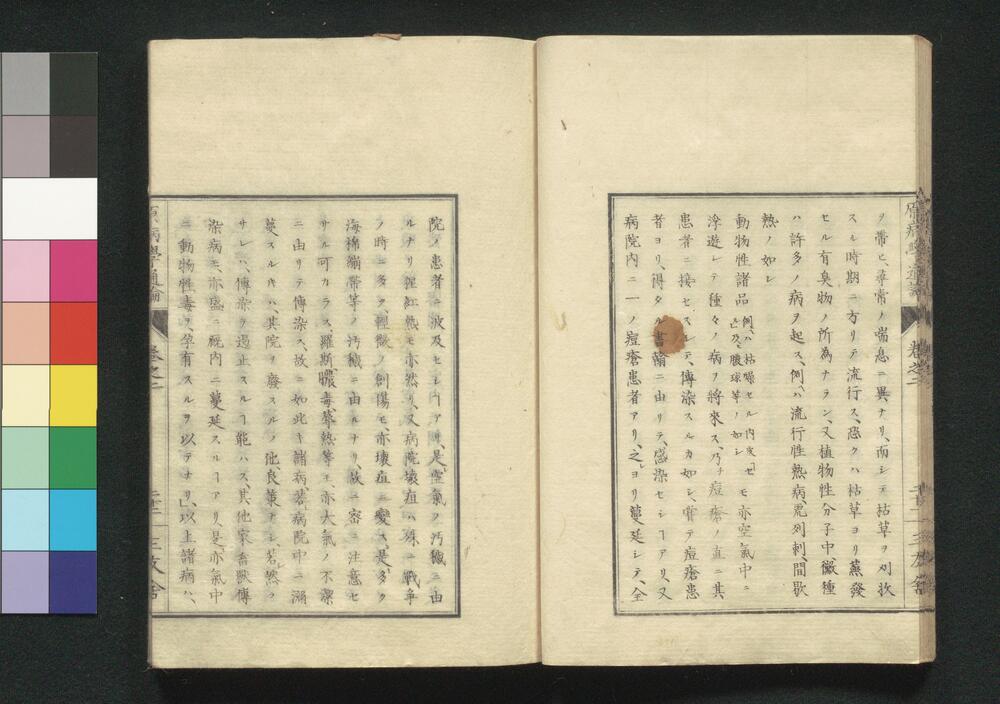 原病學通論 卷之二 三友舍
ノ帶ヒ、尋常ノ喘息ニ異ナリ、而シテ枯草ヲ刈收
スル時期ニ方リテ流行ス、恐クハ枯草ヨリ蒸發
セル有臭物ノ所為ナラン、又植物性分子中、黴種
ハ許多ノ病ヲ起ス、例ハ流行性熱病、虎列刺、間歇
熱ノ如シ
動物性諸品 例ハ枯燥セル肉皮 及ヒ膿球等ノ如シ モ亦空氣中ニ
浮遊シテ種々ノ病ヲ將來ス、乃チ痘瘡ノ直ニ其
患者ニ接セスシテ、傳染スルカ如シ、甞テ痘瘡患
者ヨリ、得タル書翰ニ由リテ、感染セシヿアリ、又
病院内ニ一ノ痘瘡患者アリ、之ヨリ蔓延シテ、全
院ノ患者ニ波及セシヿアリ、是空氣ノ汚穢ニ由
ルナリ、猩紅熱モ亦然リ、又病院壞疽ハ殊ニ戰爭
ノ時ニ多ク、輕微ノ創傷モ、亦壞疽ニ變ス、是多ク
海棉繃帶等ノ汚穢ニ由ルナリ、故ニ密ニ注意セ
サル可カラス、羅斯膿毒熱等モ、亦大氣ノ不潔
ニ由リテ傳染ス、故ニ如此キ諸病若シ病院中ニ瀰
蔓スルキハ、其院ヲ廢スルノ他良策ナシ、若然ラ
サレハ、傳染ヲ遏止スルヿ能ハス、其他家畜獸傳
染病モ、亦盛ニ院内ニ蔓延スルヿアリ、是亦氣中
ニ動物性毒ヲ、孕有スルヲ以テナリ、以上諸病ハ、
原病學通論 卷之二 二十二 三友舍